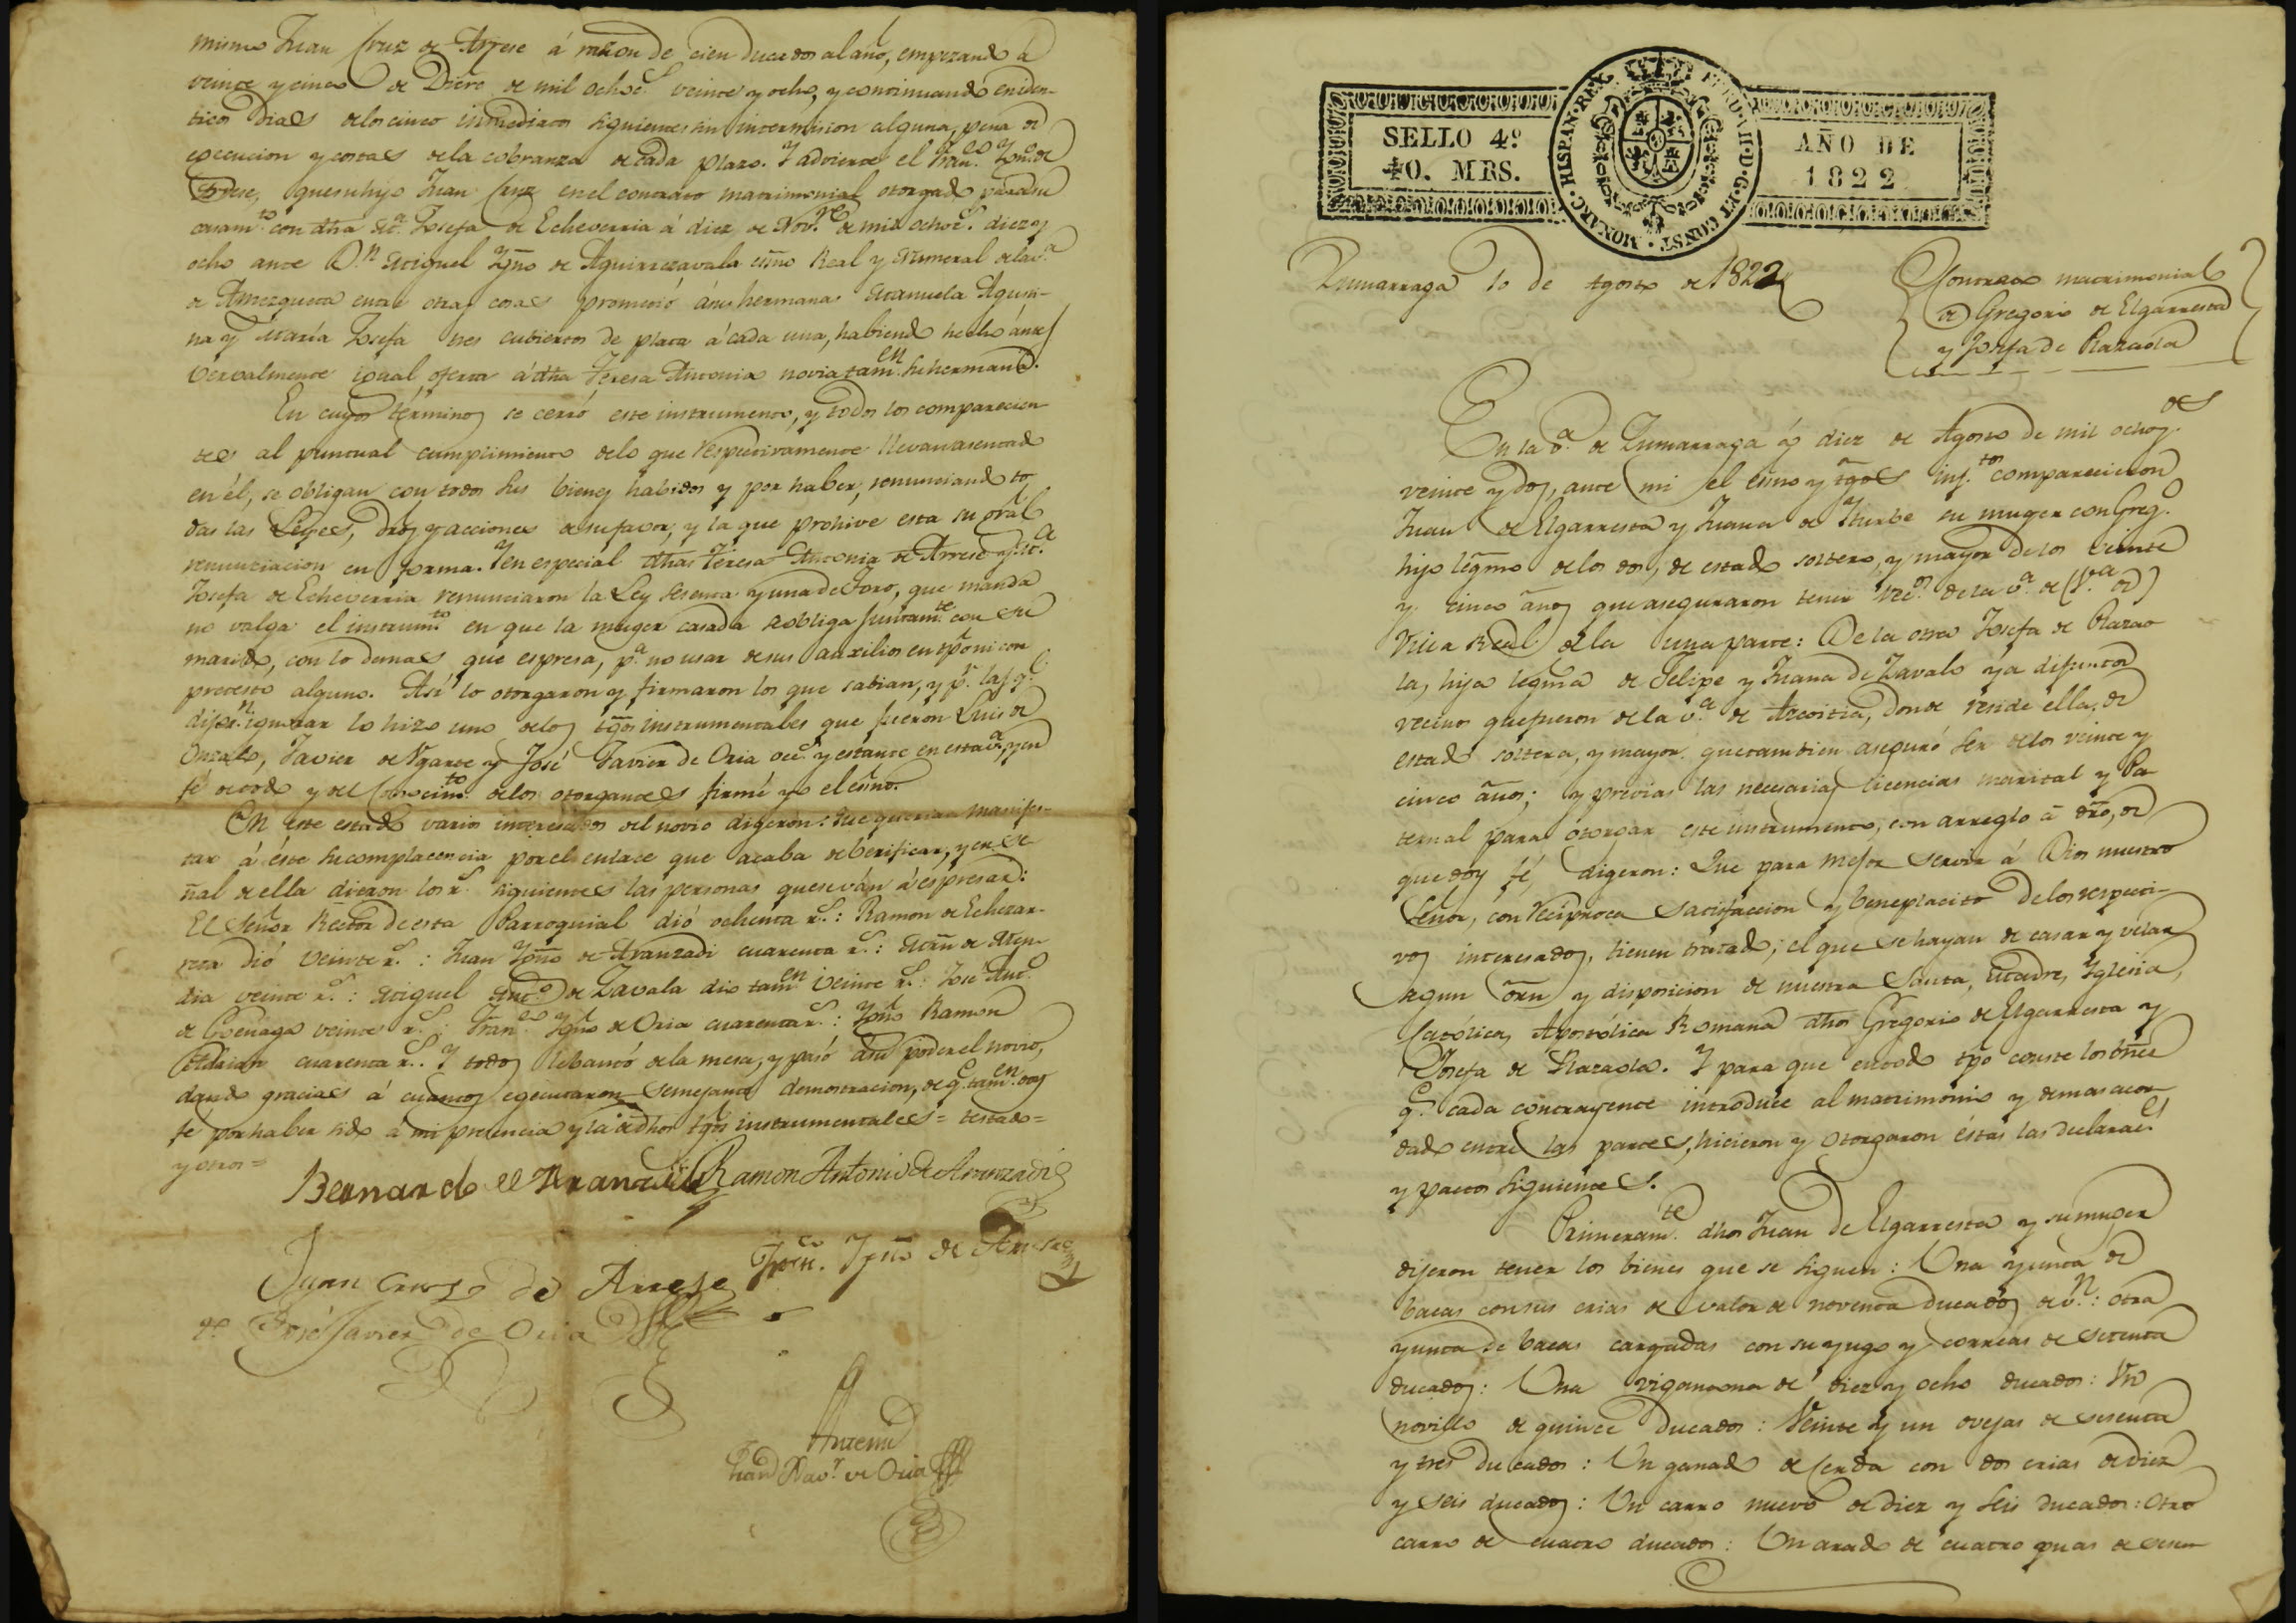 mismo Juan Cruz de Arrese á razon de cien ducados al año, empezando á
veinte y cinco de Dicre de mil ochocs. veinte y ocho, y continuando en iden-
ticos dias de los cinco inmediatos siguientes sin intermision alguna, pena de
execucion y costas de la cobranza de cada plazo. Y advierte el Franco. Ygno. de
Arrese, que su hijo Juan Cruz en el contrato matrimonial otorgado para su
casamto. con dha Ma. Josefa de Echeverria á diez de Nove. de mil ochocs. diez y
ocho ante Dn. Miguel Ygño de Aguirrezavala esño Real y Numeral de la va.
de Amezqueta entre otras cosas prometió á sus hermanas Manuela Agusti-
na y María Josefa tres cubiertos de plata á cada una, habiendo hecho ántes
verbalmente igual oferta á dha Teresa Antonia novia tamen. su hermana.
En cuyos términos se cerró este instrumento, y todos los comparecien-
tes al puntual cumplimiento de lo que respectivamente llevan asentado
en él, se obligan con todos sus bienes habidos y por haber, renunciando to-
das las Leyes, dros y acciones de su favor, y la que prohive esta su gral
renunciacion en forma. Y en especial dhas Teresa Antonia de Arrese y Ma.
Josefa de Echeverria renunciaron la Ley sesenta y una de Toro, que manda
no valga el instrumto. en que la muger casada se obliga juntamte. con su
marido, con lo demas que espresa, pa. no usar de sus auxilios en tpo ni con
pretesto alguno. Así lo otorgaron y firmaron los que sabian, y pr. las qe.
digeron. ignorar lo hizo uno de los tgos instrumentales que fueron Luis de
Onzalo, Javier de Ygarte y José Javier de Oria vecs. y estante en esta va. y en
fé de todo y del conocimto. de los otorgantes firmé yo el esño.
En este estado varios interesados del novio digeron: Que querian manifes-
tar á éste su complacencia por el enlace que acaba de berificar, y en se-
ñal de ella dieron los rs. siguientes las personas que se ván á espresar:
El Señor Rector de esta Parroquial dió ochenta rs.: Ramon de Echezar-
reta dió veinte rs.: Juan Ygño de Aranzadi cuarenta rs.: Mrñ de Men-
dia veinte rs.: Miguel Anto. de Zavala dio tamen veinte rs.: José Anto.
de Goenaga veinte rs.: Franco Ygño de Oria cuarenta rs.: Ygño Ramon
cuarenta rs. Y todo lebantó de la mesa, y pasó á su poder el novio,
dando gracias á cuantos egecutaron semejante demostracion, de qe. tamen. doy
fe por haber sido á mi presencia y la de dhos tgos instrumentales = testado =
y otros =
Ramon Antonio de Aranzadi
Juan Cruz de Arrese Franco. Ygño de Arrese
José Javier de Oria
Antemi
Juan Bavr. de Oria
SELLO 4º.
40. MRS.
HISPAN. REX. FERD. VII. D. G. ET CONST. MONARC.
AÑO DE
1822
Zumarraga 10 de Agosto de 1822
Contrato matrimonial
de Gregorio de Elgarresta
y Josefa de Plazaola
En la va. de Zumarraga á diez de Agosto de mil ochocs.
veinte y dos, ante mi el esño y tgos infrtos. comparecieron
Juan de Elgarresta y Juana de Yturbe su muger con Grego.
hijo legmo de los dos, de estado soltero, y mayor de los veinte
y cinco años que aseguraron tener vecs. de la va. de (Va. de)
Villa Real de la una parte: De la otra Josefa de Plazao-
la, hija legma de Felipe y Juana de Zavalo ya difuntos
vecinos que fueron de la va. de Azcoitia, donde reside ella, de
estado soltera, y mayor que tambien aseguró ser de los veinte y
cinco años; y previas las necesarias licencias marital y Pa-
ternal para otorgar este instrumento, con arreglo á dro, de
que doy fé, digeron: Que para mejor servir á Dios nuestro
Señor, con reciproca satisfaccion y beneplacito de los respecti-
vos interesados, tienen tratado, el que se hayan de casar y velar
segun orn y disposicion de nuestra Santa, Madre, Yglesia,
Católica, Apostólica Romana dhos Gregorio de Elgarresta y
Josefa de Plazaola. Y para que en todo tpo conste los bnes
qe. cada contrayente introduce al matrimonio y demas acor-
dado entre las partes, hicieron y otorgaron éstas las declaracs.
y pactos siguientes.
Primeramte. dhos Juan de Elgarresta y su muger
dijeron tener los bienes que se siguen: Una yunta de
bacas con sus crias de valor de noventa ducados de vn.: otra
yunta de bacas cargadas con su yugo y correas de setenta
ducados: Una viganzona de diez y ocho ducados: Un
novillo de quince ducados: Veinte y un ovejas de sesenta
y tres ducados: Un ganado de cerda con dos crias de diez
y seis ducados: Un carro nuevo de diez y seis ducados: Otro
carro de cuatro ducados: Un arado de cuatro puas de sesen-